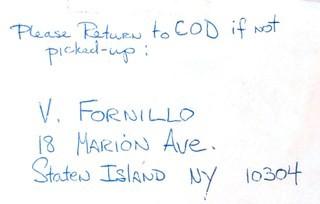 Please Return to COD if not
picked-up:
V. FORNILLO
18 MARION AVE.
Staten Island NY 10304